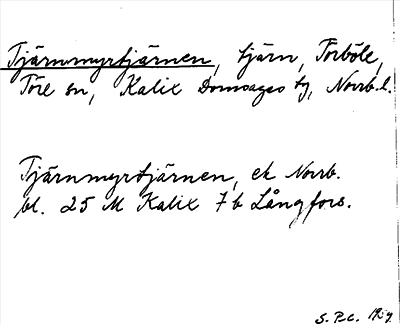 Tjärnmyrtjärnen, tjärn, Törböle,
Töre sn, Kalix Domsagas tg, Norrb. l.
Tjärnmyrtjärnen, ek Norrb.
bl. 25 M Kalix 7b Långfors.
S. P.C. 1959